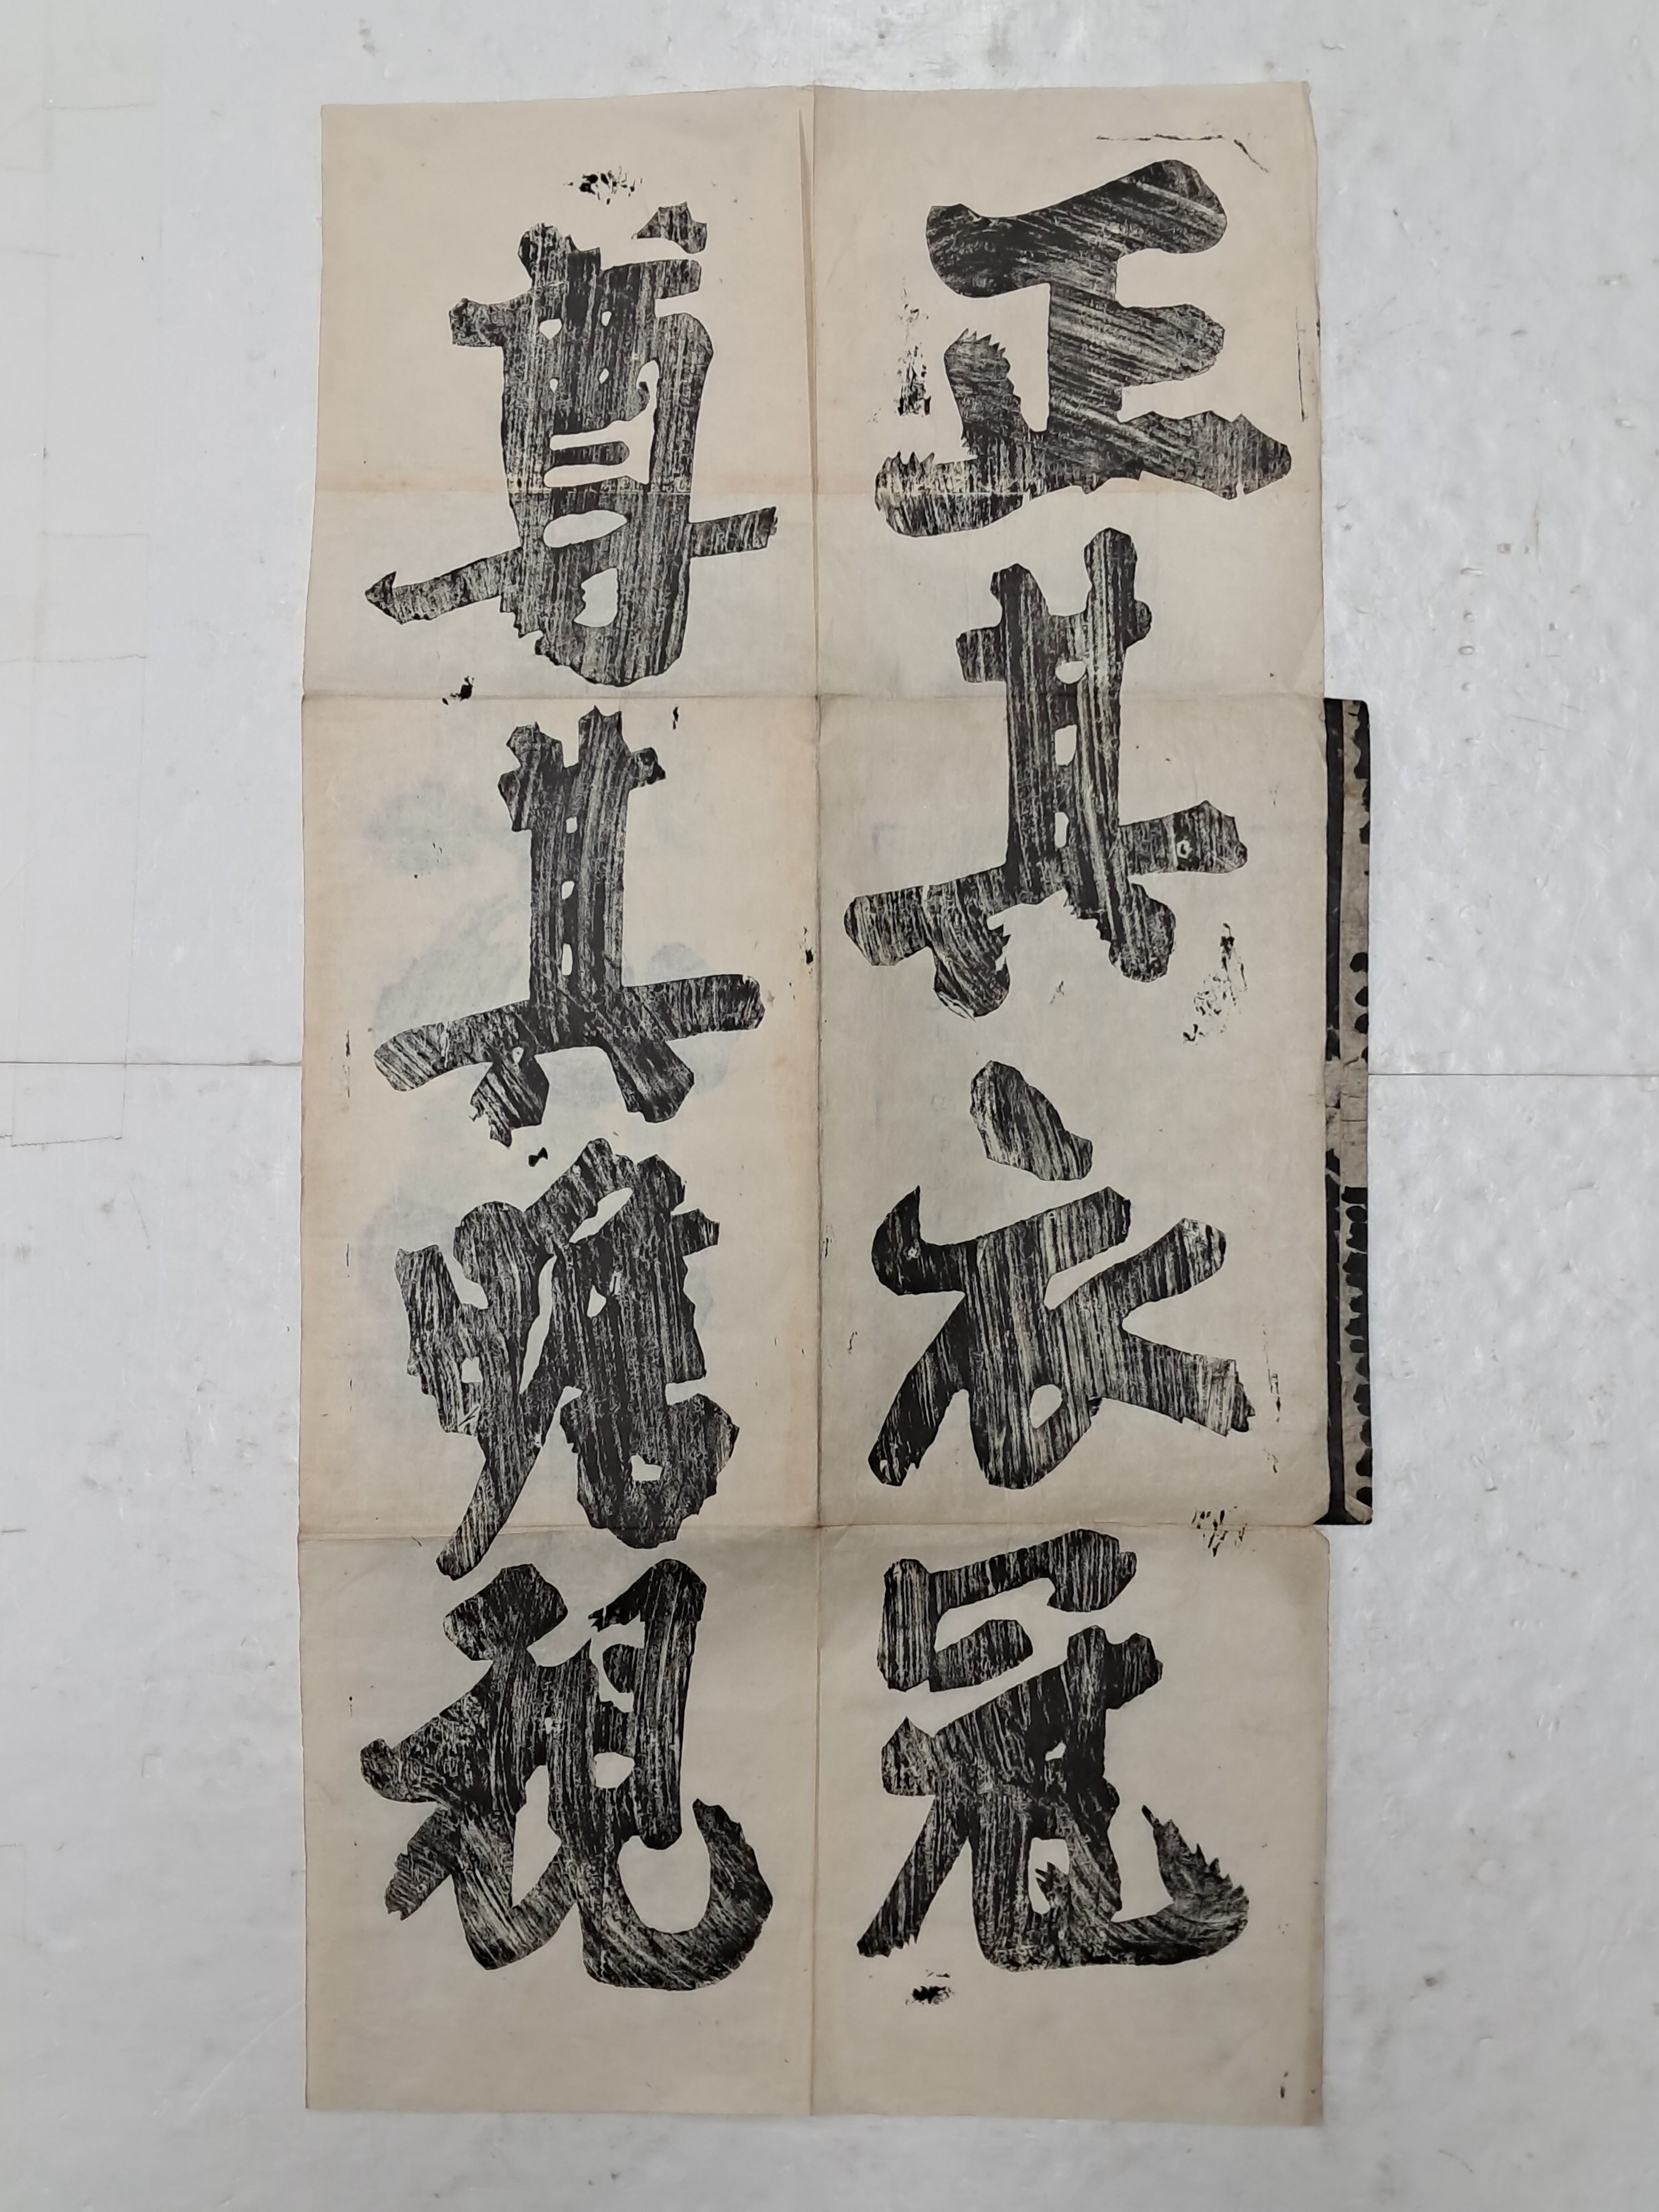 正其衣冠
尊其瞻視